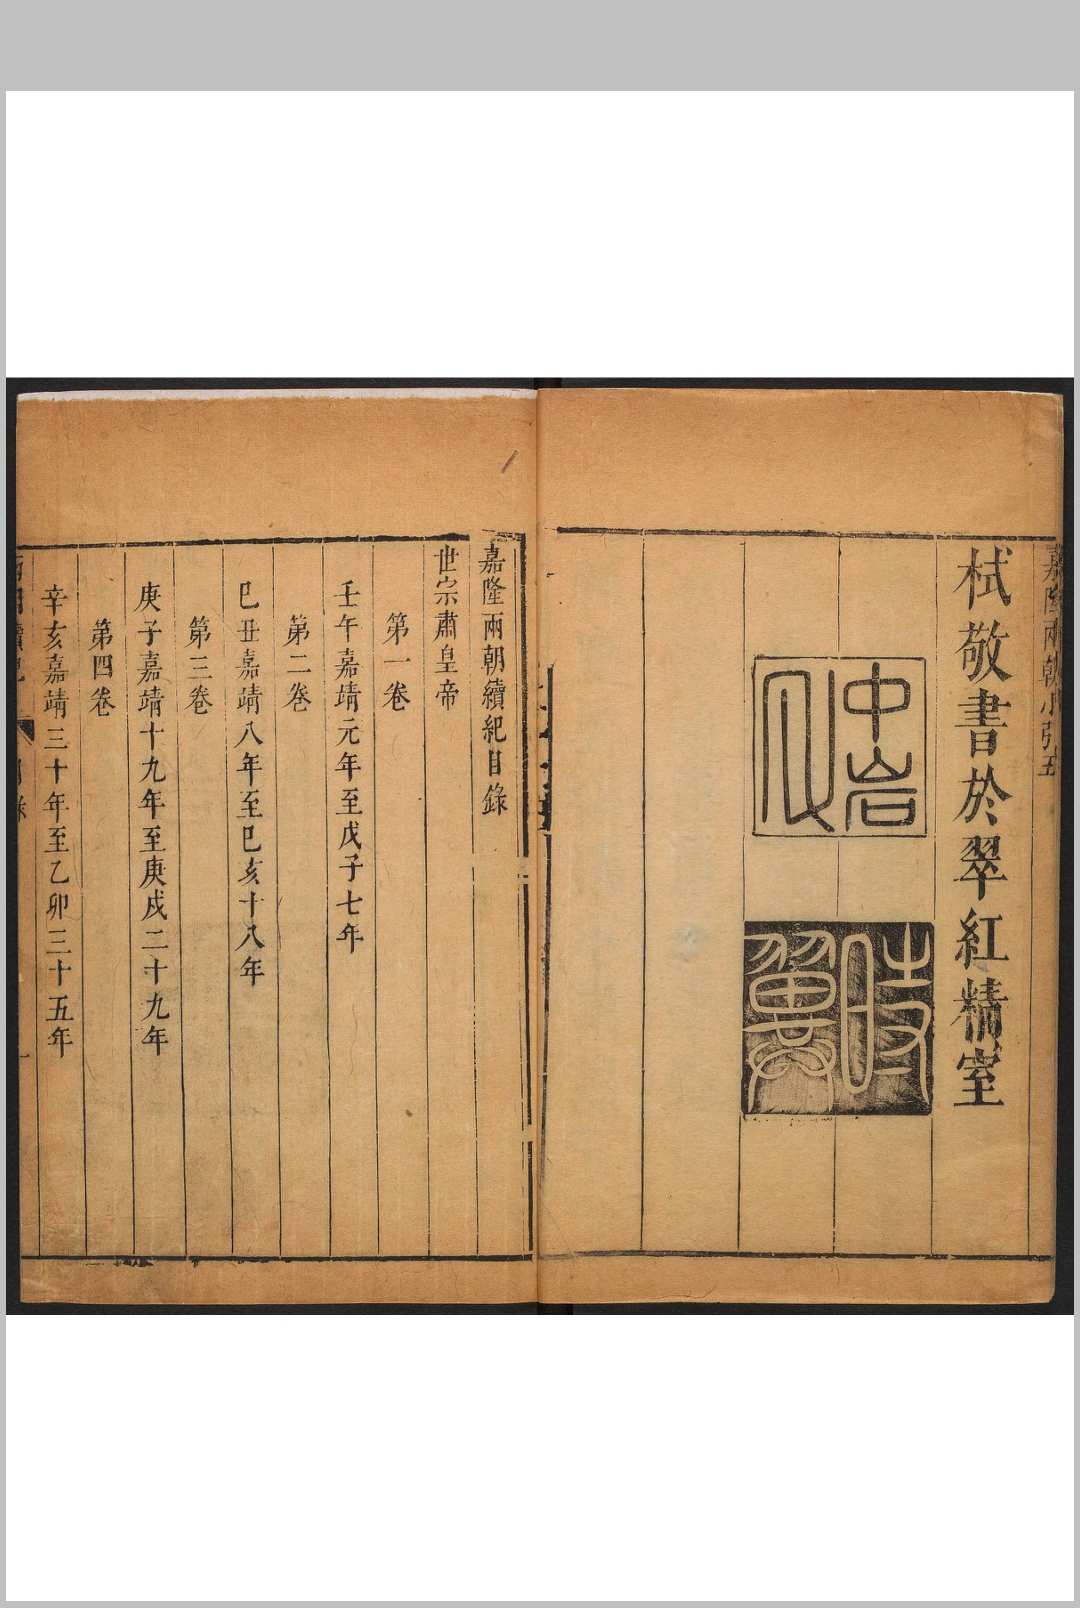 嘉隆兩朝小引五
栻敬書於翠紅精室
中岩
人
時翼
嘉隆兩朝續紀目錄
世宗肅皇帝
第一卷
壬午嘉靖元年至戊子七年
第二卷
巳丑嘉靖八年至巳亥十八年
第三卷
庚子嘉靖十九年至庚戌二十九年
第四卷
辛亥嘉靖三十年至乙卯三十五年